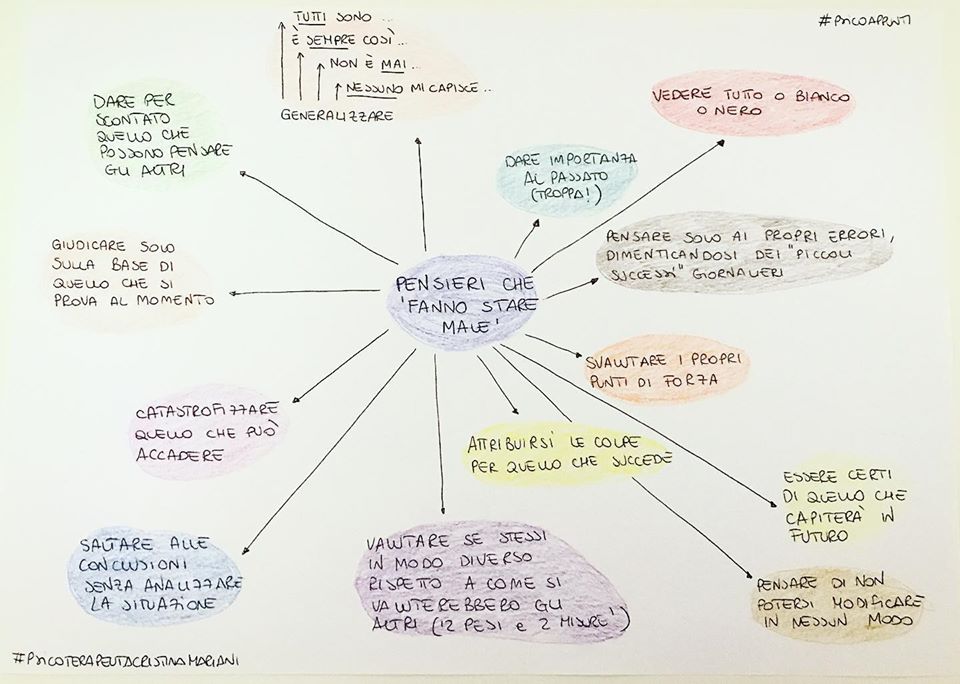 #PSICOAPPUNTI
TUTTI SONO...
È SEMPRE COSÌ...
NON È MAI...
NESSUNO MI CAPISCE..
GENERALIZZARE
VEDERE TUTTO O BIANCO
O NERO
DARE PER
SCONTATO
QUELLO CHE
POSSONO PENSARE
GLI ALTRI
DARE IMPORTANZA
AL PASSATO
(TROPPA!)
PENSARE SOLO AI PROPRI ERRORI,
DIMENTICANDOSI DEI "PICCOLI
SUCCESSI" GIORNALIERI
GIUDICARE SOLO
SULLA BASE DI
QUELLO CHE SI
PROVA AL MOMENTO
PENSIERI CHE
'FANNO STARE
MALE'
SVALUTARE I PROPRI
PUNTI DI FORZA
CATASTROFIZZARE
QUELLO CHE PUÒ
ACCADERE
ATTRIBUIRSI LE COLPE
PER QUELLO CHE SUCCEDE
ESSERE CERTI
DI QUELLO CHE
CAPITERÀ IN
FUTURO
SALTARE ALLE
CONCLUSIONI
SENZA ANALIZZARE
LA SITUAZIONE
VALUTARE SE STESSI
IN MODO DIVERSO
RISPETTO A COME SI
VALUTEREBBERO GLI
ALTRI ('2 PESI e 2 MISURE')
PENSARE DI NON
POTERSI MODIFICARE
IN NESSUN MODO
#PSICOTERAPEUTACRISTINAMARIANI